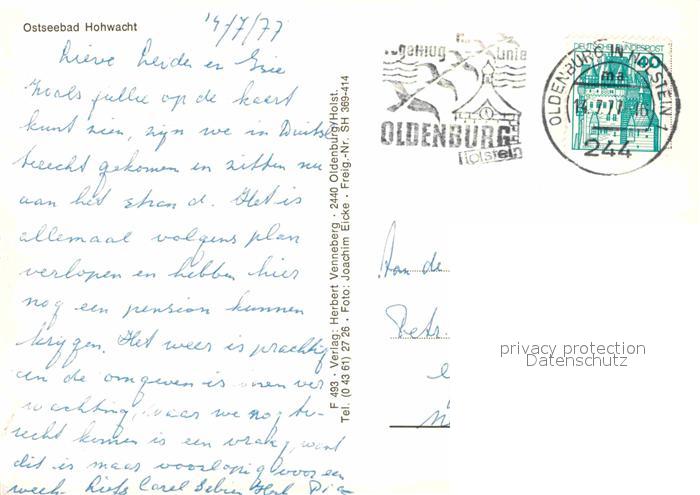 Ostseebad Hohwacht
14/7/77
Lieve Leider en
Zoals jullie op de kaart
kunt zien, zijn we in Duits
terecht gekomen en zitten nu
aan het strand. Het is
allemaal volgens plan
verlopen en hebben hier
nog een pension kunnen
krijgen. Het weer is prachtig
en de omgeven is
wachting, waar we nog te-
recht komen is een vraag, want
dit is maar voorlopig voor een
week. Liefs Carel
F 493 · Verlag: Herbert Venneberg · 2440 Oldenburg/Holst.
Tel. (0 43 61) 27 26 · Foto: Joachim Eicke · Freig.-Nr. SH 369-414
Vogelflug Linie
OLDENBURG
Holstein
DEUTSCHE BUNDESPOST
40
OLDENBURG IN HOLSTEIN 1
ma
14.7.77
244
Aan de
Betr.
privacy protection
Datenschutz